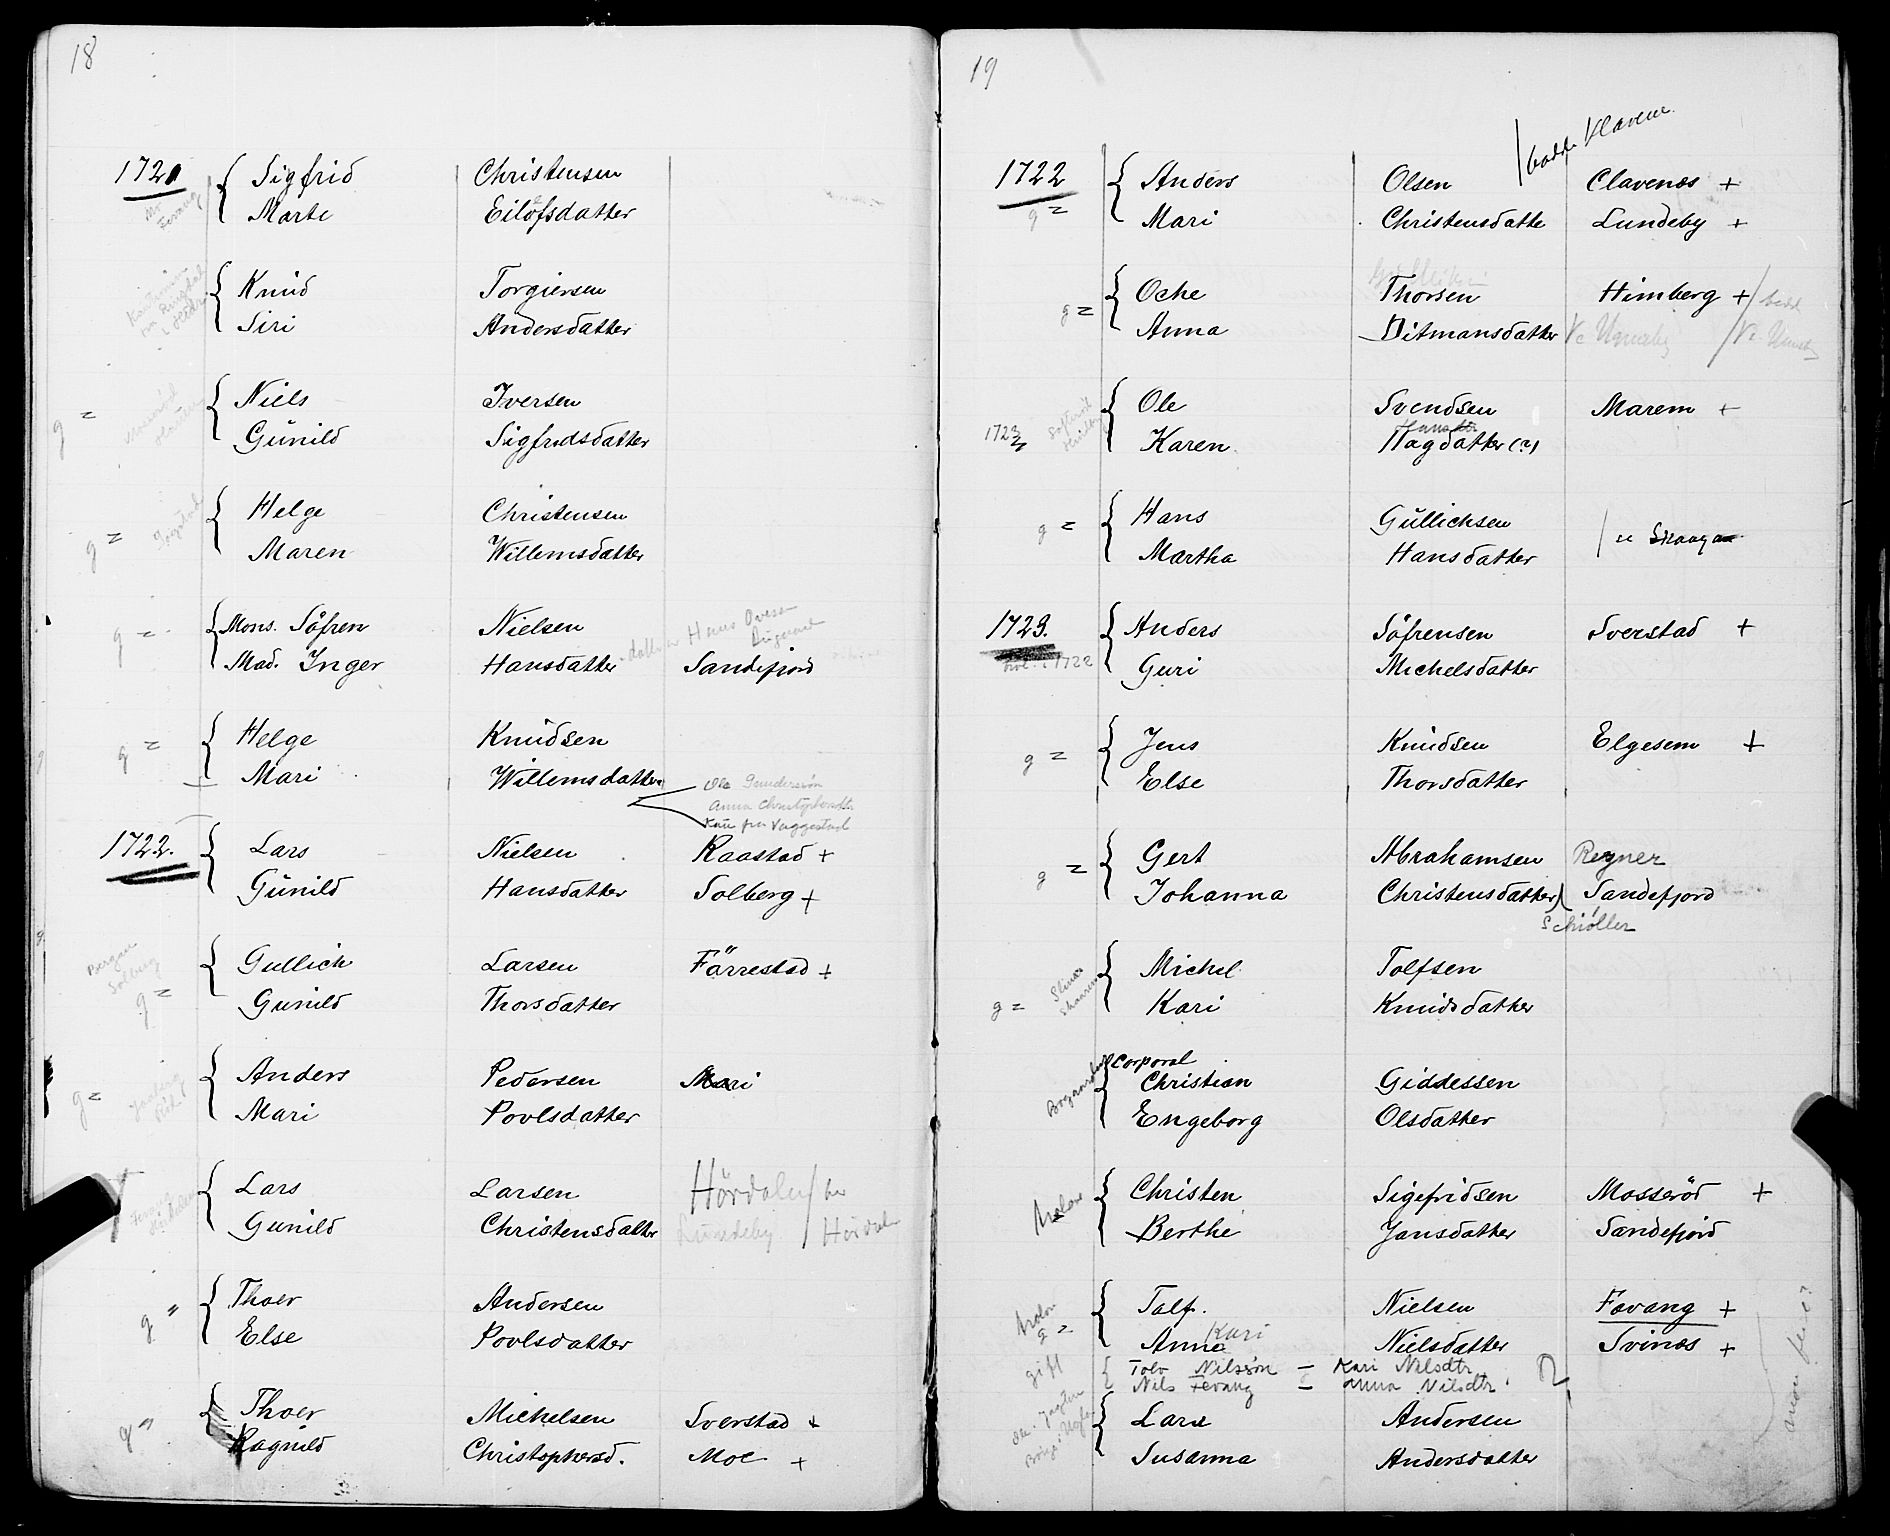 18
1721 Sigfrid Christensen
Marte Eilofsdatter
Knud Torgiersen
Siri Andersdatter
g = Niels Iversen
Günild Sigfredsdatter
g = Helge Christensen
Maren Willemsdatter
g = Mons. Söfren Nielsen
Mad. Inger Hansdatter Sandefjord
g = Helge Knudsen
Mari Willemsdatter
Ole Gundersön
Anna Christophersdtr
1722. Lars Nielsen Raastad +
Günild Hansdatter Solberg +
Gullich Larsen Färrestad +
g = Gunild Thorsdatter
Anders Pedersen Mari
g = Mari Povlsdatter
Lars Larsen Hördalen
Gunild Christensdatter Lundeby
g " Thoer Andersen
Else Povlsdatter
g " Thoer Michelsen Sverstad +
Ragnild Christophersd. Moe +
19
begge Klavene
1722 Anders Olsen Clavenæs +
g = Mari Christensdatte Lundeby +
g = Oche Thorsen Himberg +
Anna Ditmansdatter
Ole Svendsen Marem +
1723 Karen Hagdatter (?)
g = Hans Güllichsen
Martha Hansdatter
1723. Anders Söfrensen Sverstad +
1722 Guri Michelsdatter
g = Jens Knudsen Elgesem +
Else Thorsdatter
g = Gert Abrahamsen Regner
Johanna Christensdatter Sandefjord
Schiøller
Michel Tolfsen
g = Kari Knudsdatter
Corporal
Christian Giddessen
Engeborg Olsdatter
Christen Sigefridsen Mosseröd +
Berthe Jansdatter Sandefjord
Tolf. Nielsen Favang +
g = Anne Kari Nielsdatter Svinæs +
gift Tolv Nilssön = Kari Nilsdtr
Nils Fevang = Anna Nilsdtr.
Lars Andersen
Susanna Andersdatter